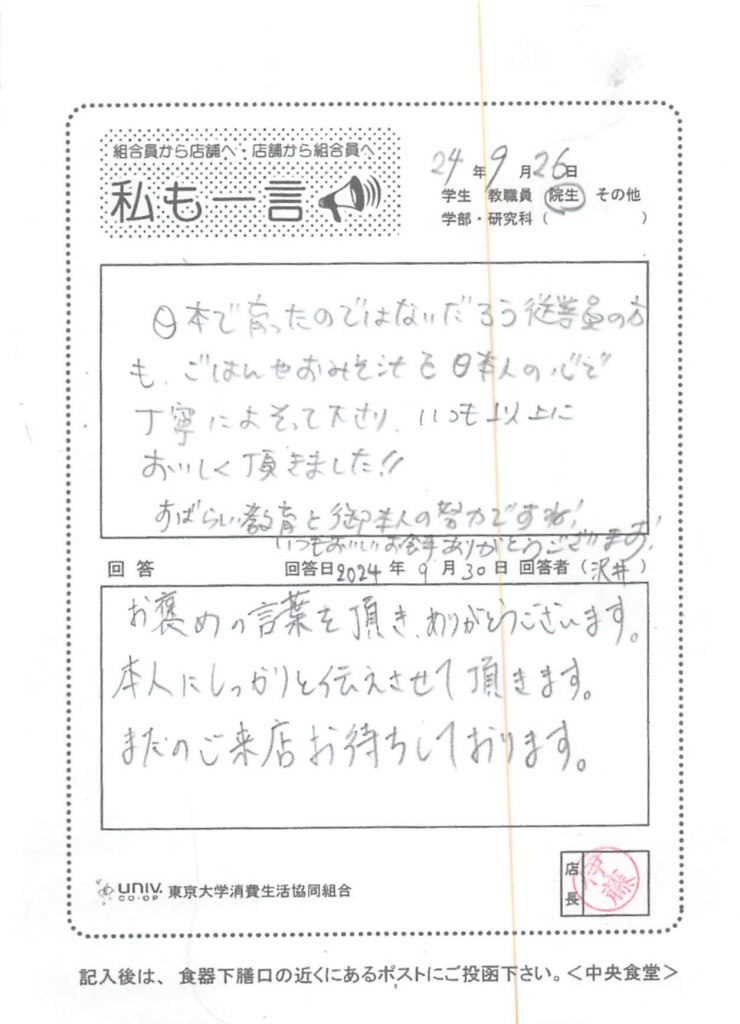 組合員から店舗へ・店舗から組合員へ
私も一言
24年9月26日
学生 教職員 院生 その他
学部・研究科（ ）
日本で育ったのではないだろう従業員の方
も、ごはんやおみそ汁を日本人の心で
丁寧によそって下さり、いつも以上に
おいしく頂きました!!
すばらしい教育と御本人の努力ですね!
いつもおいしいお食事ありがとうございます!
回答 回答日2024年9月30日 回答者（沢井）
お褒めの言葉を頂き、ありがとうございます。
本人にしっかりと伝えさせて頂きます。
またのご来店お待ちしております。
UNIV. CO-OP 東京大学消費生活協同組合
店長 伊藤
記入後は、食器下膳口の近くにあるポストにご投函下さい。＜中央食堂＞